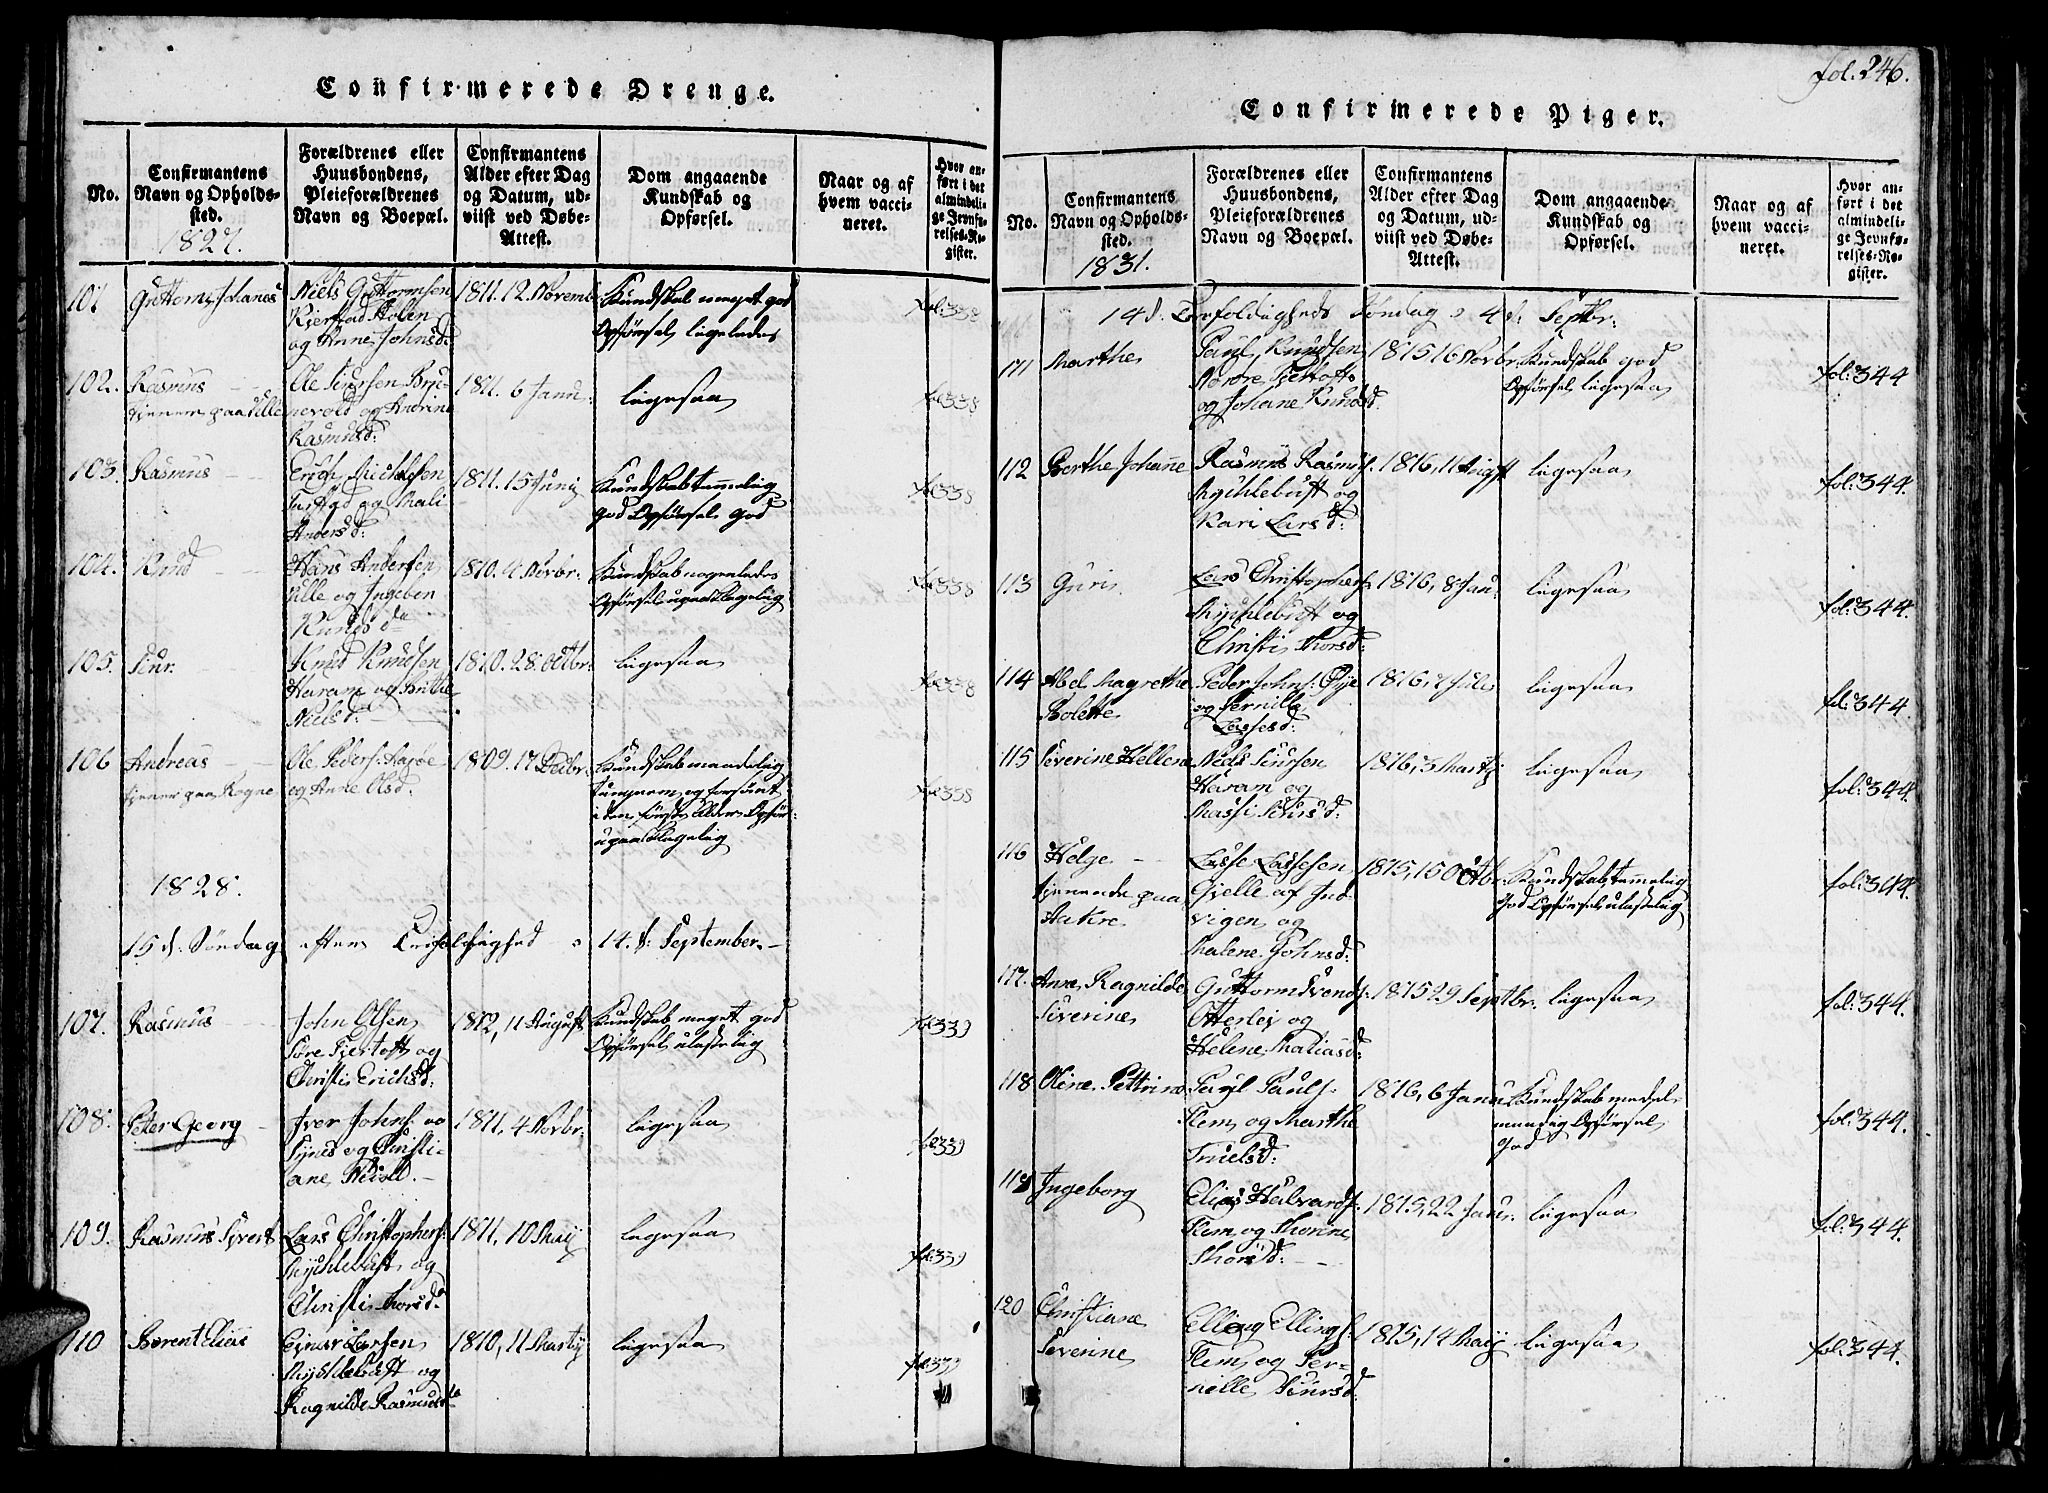 Confirmerede Drenge.
No.
Confirmantens Navn og Opholdssted.
1827.
Forældrenes eller Huusbondens, Pleieforældrenes Navn og Boepæl.
Confirmantens Alder efter Dag og Datum, udviist ved Døbe-Attest.
Dom angaaende Kundskab og Opførsel.
Naar og af hvem vaccineret.
Hvor anført i det almindelige Jevnførelses-Register.
101 Guttorm Johanes
Niels Guttormsen
Kjerstad Holen
og Anne Johnsd:
1811. 12. Novemb
Kundskab meget god
Opførsel ligeledes
fol:338
102. Rasmus
tjener paa Ulle
Ole Siursen
og Andrine
Rasmusd:
1811. 6 Janu:
ligesaa
fol338
103. Rasmus
Erich Michelsen
og Mali
Andersd:
1811. 15 Junij
Kundskab temmelig
god Opførsel god
fol338
104. Knud
Hans Andersen
Ulle og Ingebor
Knudsda
1810. 4 Novbr:
Kundskab nogenledes
Opførsel upaaklagelig
fol338
105. Siur.
Knud Knudsen
Haram og Birthe
Nielsd:
1810. 28. Octbr:
ligesaa
fol338
106 Andreas
tjener paa Rogne
Ole Peders:
og Anne Olsd:
1809. 17 Decbr:
Kundskab maadelig
og forsømt
i den første Alder Opfør:
upaaklagelig
fol338
1828.
15 d: Søndag efter Trifoldighed 14. d: September.
107. Rasmus
John Olsen
Søre Fjertoft og
Christi Erichsd:
1812, 11 August
Kundskab meget god
Opførsel ulastelig
fol339
108. Peter Georg
Iver Johns:
og Christi-
ane
1811, 4 Novbr:
ligesaa
fol339
109. Rasmus Sivert
Lars Christophers:
Mychlebust og
Christi Thorsd:
1811, 10 Maij
ligesaa
fol:339
110 Berent Elias
Ejnar Larsen
Mychlebust og
Ragnilde Rasmusdr
1810, 11 Martij
ligesaa
fol339
fol. 246.
Confirmerede Piger.
No.
Confirmantens Navn og Opholdssted.
1831.
Forældrenes eller Huusbondens, Pleieforældrenes Navn og Boepæl.
Confirmantens Alder efter Dag og Datum, udviist ved Døbe-Attest.
Dom angaaende Kundskab og Opførsel.
Naar og af hvem vaccineret.
Hvor anført i det almindelige Jevnførelses-Register.
14 d. Trefoldigheds Søndag 4 d: Septbr:
111 Marthe
Paul Knudsen
Nordre Fjertofte
og Johane Knudsd:
1815 16 Novbr.
Kundskab god
Opførsel ligesaa
fol:344
112 Berthe Johanne
Rasmus Rasmus:
Mychlebust og
Kari Larsd:
1816, 11 Augst
ligesaa
fol:344.
113 Guri
Lars Christophers:
Mychlebust og
Christi Thorsd:
1816, 8 Jan:
ligesaa
fol:344.
114 Abel Magrethe
Bolette
Peder Johns:
og Pernille
Lassesd:
1816, 7 Juli
ligesaa
fol:344.
115 Siverine Hellene
Niels Siursen
Haram og
Massi Siursd:
1816, 3 Martij
ligesaa
fol:344.
116 Helge
tjenende paa
Aakre
Lasse Lassesen
Gjelle af Ind
vigen og
Malene Johnsd:
1815, 15 Octbr.
Kundskab temmelig
God Opførsel ulastelig
fol:344.
117. Ane Ragnilde
Siverine
Guttorm Svends:
Otterlej og
Helene Matiasd:
1815 29 Septbr.
ligesaa
fol:344.
118 Oline Pettrine
Paul Pauls:
Flem og Marthe
Truelsd:
1816, 6 Janu
Kundskab middel-
maadig Opførsel
God
fol:344.
119 Ingeborg
Elias Halvards:
Flem og Thorine
Thorsd:
1815, 22 Janr.
ligesaa
fol:344.
120 Christiane
Siverine
Elling Ellings:
Flem og Per-
nille Siursd:
1815, 14 Maij
ligesaa
fol:344.